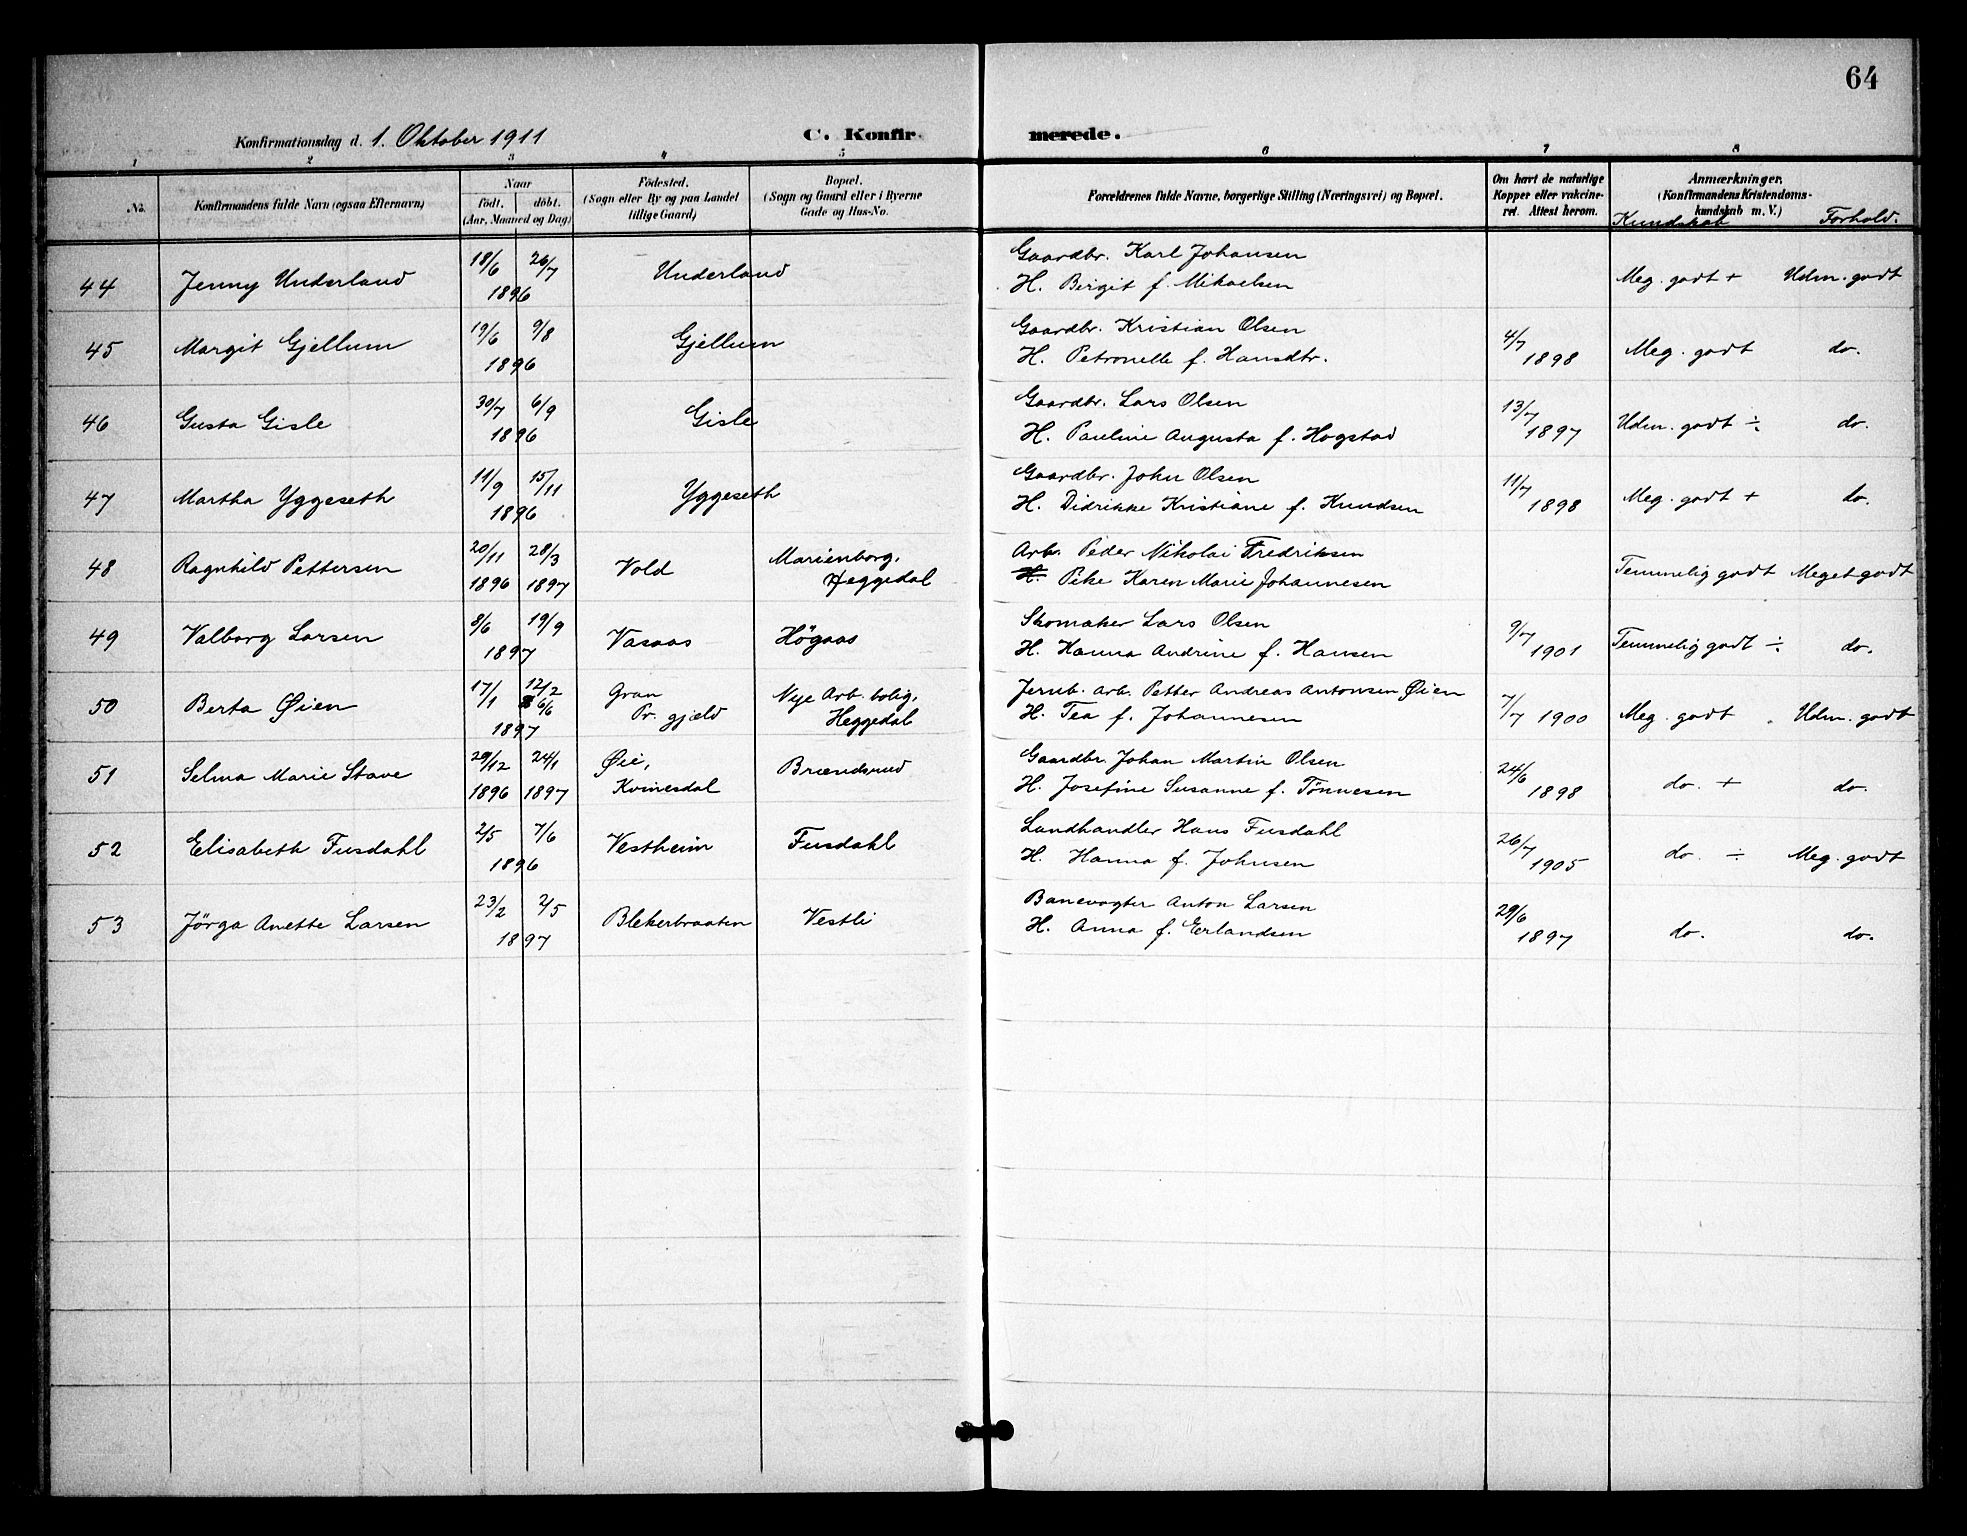 64
Konfirmationsdag d. 1. Oktober 1911 C. Konfirmerede.
1 2 3 4 5 6 7 8
No. Konfirmandens fulde Navn (ogsaa Efternavn) Naar født. døbt. (Aar, Maaned og Dag) Fødested. (Sogn eller By og paa Landet tillige Gaard) Bopæl. (Sogn og Gaard eller i Byerne Gade og Hus-No. Forældrenes fulde Navne, borgerlige Stilling (Næringsvei) og Bopæl. Om havt de naturlige Kopper eller vakcineret. Attest herom. Anmærkninger. (Konfirmandens Kristendomskundskab m. V.) Kundskab Forhold.
44 Jenny Underland 18/6 26/7 1896 Underland Gaardbr. Karl Johansen
H. Birgit f. Mikaelsen Meg. godt + Udm. godt
45 Margit Gjellum 19/6 9/8 1896 Gjellum Gaardbr. Kristian Olsen
H. Petronelle f. Hansdtr. 4/7 1898 Meg. godt do.
46 Gusta Gisle 30/7 6/9 1896 Gisle Gaardbr. Lars Olsen
H. Pauline Augusta f. Hogstad 13/7 1897 Udm. godt ÷ do.
47 Martha Yggeseth 11/9 15/11 1896 Yggeseth Gaardbr. John Olsen
H. Didrikke Kristiane f. Knudsen 11/7 1898 Meg. godt + do.
48 Ragnhild Pettersen 20/11 1896 28/3 1897 Vold Marienborg, Heggedal Arb. Peder Nikolai Fredriksen
H. Pike Karen Marie Johannesen Temmelig godt Meget godt
49 Valborg Larsen 8/6 19/9 1897 Vasaas Högaas Skomaker Lars Olsen
H. Hanna Andrine f. Hansen 9/7 1901 Temmelig godt ÷ do.
50 Berta Øien 17/1 12/2 6/6 1897 Gran Pr. gjæld Nye Arb. bolig, Heggedal Jernb. arb. Petter Andreas Antonsen Øien
H. Tea f. Johannesen 7/7 1900 Meg. godt Udm. godt
51 Selma Marie Stave 29/12 1896 24/1 1897 Øie, Kvinesdal Brændsrud Gaardbr. Johan Martin Olsen
H. Josefine Susanne f. Tönnesen 24/6 1898 do. + do.
52 Elisabeth Fusdahl 2/5 7/6 1896 Vestheim Fusdahl Landhandler Hans Fusdahl
H. Hanna f. Johnsen 26/7 1905 do. ÷ Meg. godt
53 Jörga Anette Larsen 23/2 2/5 1897 Blekerbraaten Vestli Banevogter Anton Larsen
H. Anna f. Erlandsen 29/6 1897 do. do.